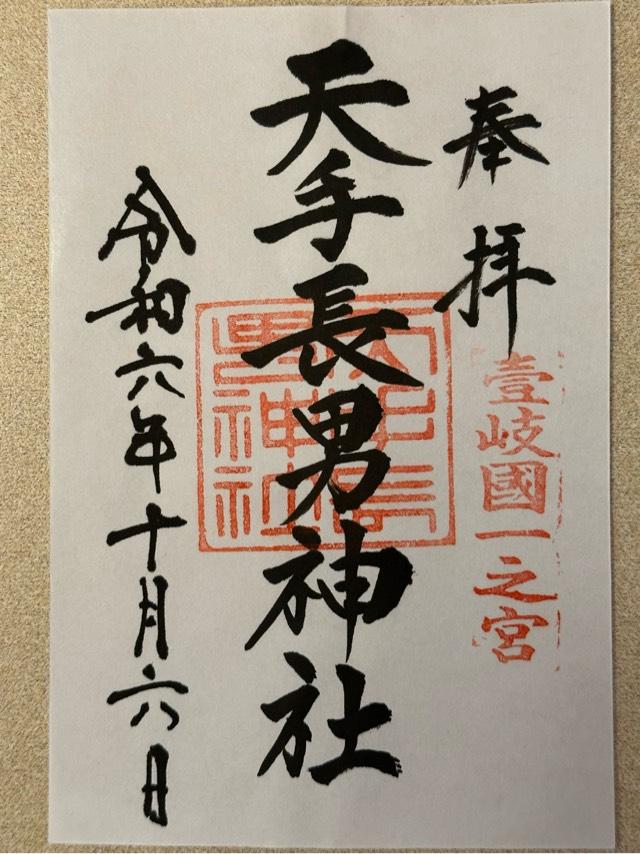 奉拝
壹岐國一之宮
天手長男神社
令和六年十月六日